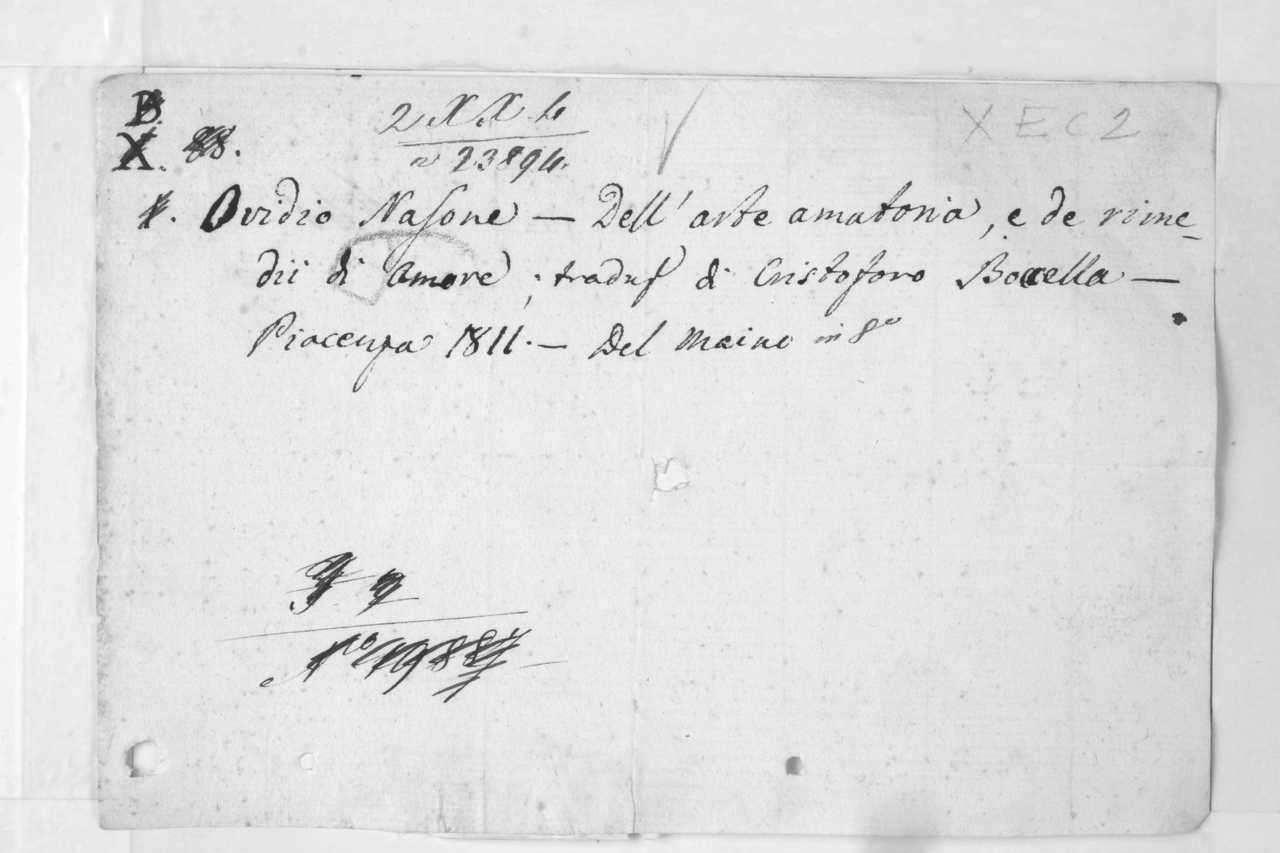 B.
X. 88.
2 X X 4
n 23894.
X E C 2
Ovidio Nasone — Dell' arte amatoria, e de rime-
dii di Amore, ; traduz di Cristoforo Boccella —
Piacenza 1811. — Del Maino in 8º